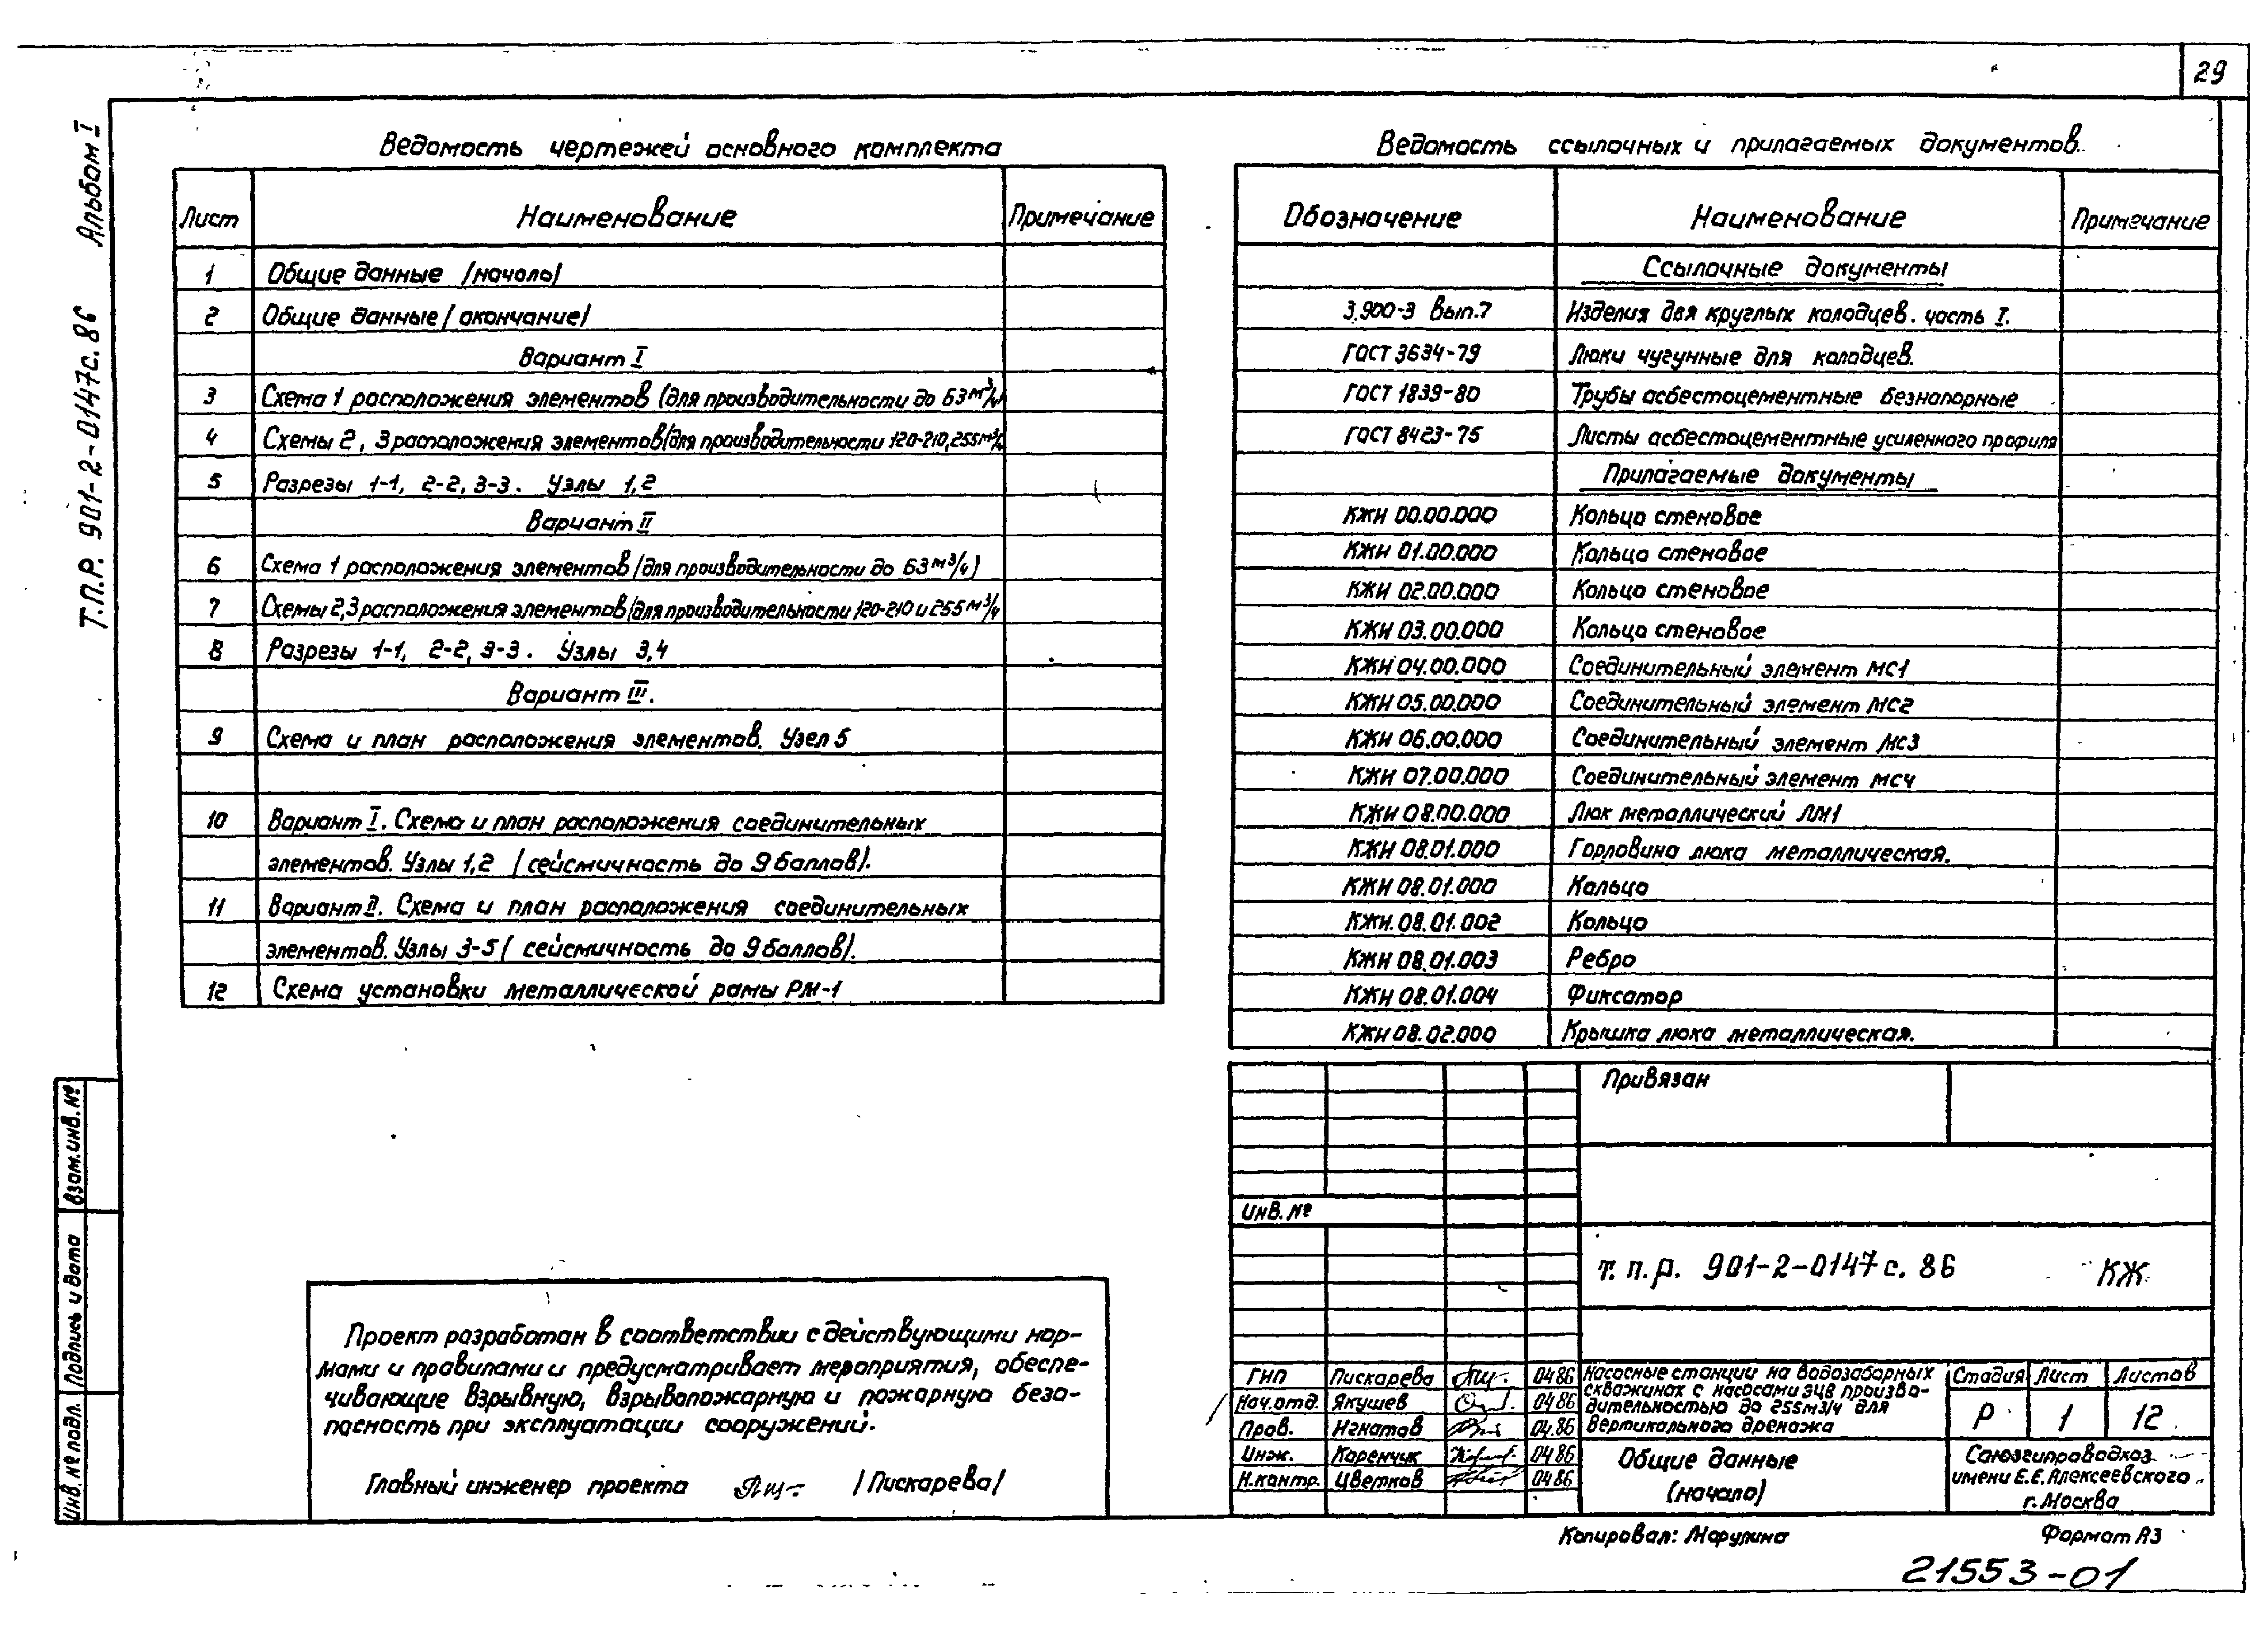 29
Т.П.Р. 901-2-0147с.86 Альбом I
Ведомость чертежей основного комплекта
Лист Наименование Примечание
1 Общие данные (начало)
2 Общие данные (окончание)
Вариант I
3 Схема 1 расположения элементов (для производительности до 63 м³/ч)
4 Схемы 2, 3 расположения элементов (для производительности 120-210, 255 м³/ч
5 Разрезы 1-1, 2-2, 3-3. Узлы 1,2
Вариант II
6 Схема 1 расположения элементов (для производительности до 63 м³/ч)
7 Схемы 2,3 расположения элементов (для производительности 120-210 и 255 м³/ч
8 Разрезы 1-1, 2-2, 3-3. Узлы 3,4
Вариант III.
9 Схема и план расположения элементов. Узел 5
10 Вариант I. Схема и план расположения соединительных
элементов. Узлы 1,2 (сейсмичность до 9 баллов).
11 Вариант II. Схема и план расположения соединительных
элементов. Узлы 3-5 (сейсмичность до 9 баллов).
12 Схема установки металлической рамы РМ-1
Ведомость ссылочных и прилагаемых документов.
Обозначение Наименование Примечание
Ссылочные документы
3.900-3 Вып.7 Изделия для круглых колодцев. часть I.
ГОСТ 3634-79 Люки чугунные для колодцев.
ГОСТ 1839-80 Трубы асбестоцементные безнапорные
ГОСТ 8423-75 Листы асбестоцементные усиленного профиля
Прилагаемые документы
КЖИ 00.00.000 Кольцо стеновое
КЖИ 01.00.000 Кольцо стеновое
КЖИ 02.00.000 Кольцо стеновое
КЖИ 03.00.000 Кольцо стеновое
КЖИ 04.00.000 Соединительный элемент МС1
КЖИ 05.00.000 Соединительный элемент МС2
КЖИ 06.00.000 Соединительный элемент МС3
КЖИ 07.00.000 Соединительный элемент МС4
КЖИ 08.00.000 Люк металлический ЛМ1
КЖИ 08.01.000 Горловина люка металлическая.
КЖИ 08.01.000 Кольцо
КЖИ.08.01.002 Кольцо
КЖИ 08.01.003 Ребро
КЖИ 08.01.004 Фиксатор
КЖИ 08.02.000 Крышка люка металлическая.
Привязан
Инв. №
т.п.р. 901-2-0147с.86 КЖ
ГИП Пискарева 04.86
Нач.отд. Якушев 04.86
Пров. Игнатов 04.86
Инж. Каренчук 04.86
Н.контр. Цветков 04.86
Насосные станции на водозаборных
скважинах с насосами ЭЦВ произво-
дительностью до 255м3/ч для
вертикального дренажа
Стадия Лист Листов
Р 1 12
Общие данные
(начало)
Союзгипроводхоз
имени Е.Е.Алексеевского
г. Москва
Проект разработан в соответствии с действующими нор-
мами и правилами и предусматривает мероприятия, обеспе-
чивающие взрывную, взрывопожарную и пожарную безо-
пасность при эксплуатации сооружений.
Главный инженер проекта (Пискарева)
Инв. № подл. Подпись и дата Взам.инв.№
Копировал: Марулина Формат А3
21553-01